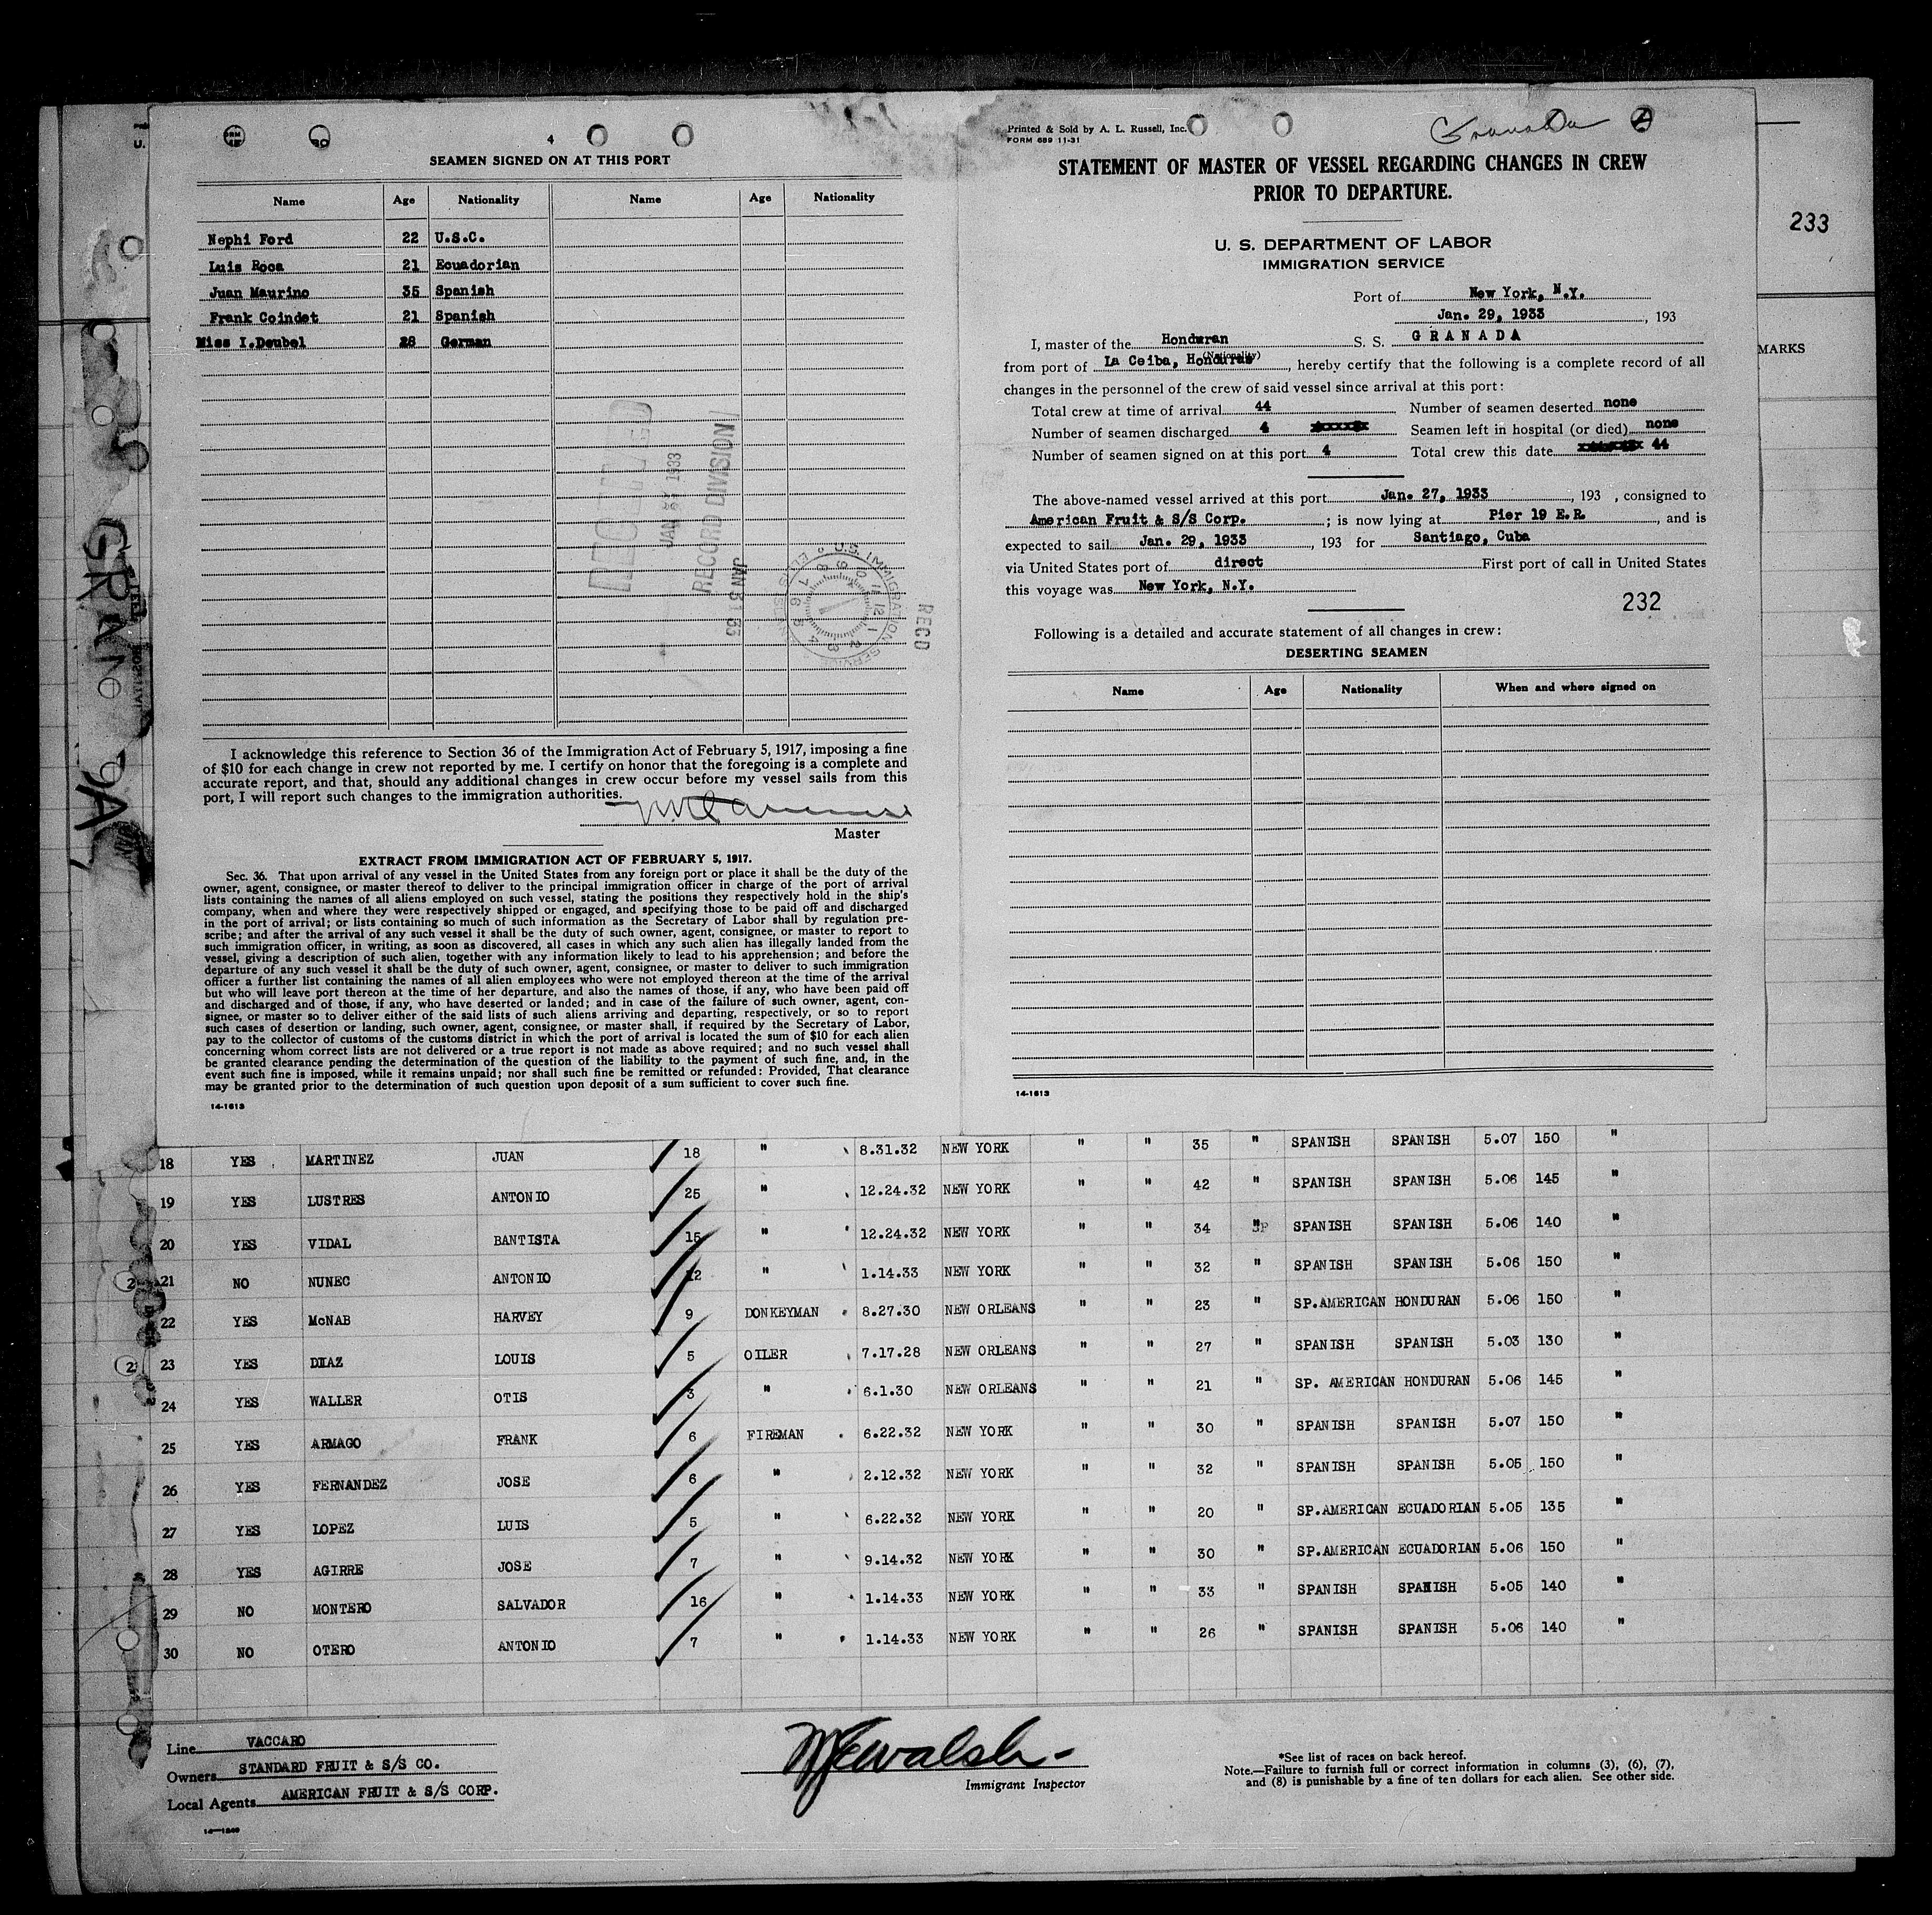 4
SEAMEN SIGNED ON AT THIS PORT
Name Age Nationality Name Age Nationality
Nephi Ford 22 U.S.C.
Luis Roca 21 Ecuadorian
Juan Maurino 35 Spanish
Frank Coindet 21 Spanish
Miss I.Deubel 28 German
JAN 31 1933
RECORD DIVISION
JAN 31 33
U.S. IMMIGRATION SERVICE
RECD
I acknowledge this reference to Section 36 of the Immigration Act of February 5, 1917, imposing a fine
of $10 for each change in crew not reported by me. I certify on honor that the foregoing is a complete and
accurate report, and that, should any additional changes in crew occur before my vessel sails from this
port, I will report such changes to the immigration authorities.
Master
EXTRACT FROM IMMIGRATION ACT OF FEBRUARY 5, 1917.
Sec. 36. That upon arrival of any vessel in the United States from any foreign port or place it shall be the duty of the
owner, agent, consignee, or master thereof to deliver to the principal immigration officer in charge of the port of arrival
lists containing the names of all aliens employed on such vessel, stating the positions they respectively hold in the ship's
company, when and where they were respectively shipped or engaged, and specifying those to be paid off and discharged
in the port of arrival; or lists containing so much of such information as the Secretary of Labor shall by regulation pre-
scribe; and after the arrival of any such vessel it shall be the duty of such owner, agent, consignee, or master to report to
such immigration officer, in writing, as soon as discovered, all cases in which any such alien has illegally landed from the
vessel, giving a description of such alien, together with any information likely to lead to his apprehension; and before the
departure of any such vessel it shall be the duty of such owner, agent, consignee, or master to deliver to such immigration
officer a further list containing the names of all alien employees who were not employed thereon at the time of the arrival
but who will leave port thereon at the time of her departure, and also the names of those, if any, who have been paid off
and discharged and of those, if any, who have deserted or landed; and in case of the failure of such owner, agent, con-
signee, or master so to deliver either of the said lists of such aliens arriving and departing, respectively, or so to report
such cases of desertion or landing, such owner, agent, consignee, or master shall, if required by the Secretary of Labor,
pay to the collector of customs of the customs district in which the port of arrival is located the sum of $10 for each alien
concerning whom correct lists are not delivered or a true report is not made as above required; and no such vessel shall
be granted clearance pending the determination of the question of the liability to the payment of such fine, and, in the
event such fine is imposed, while it remains unpaid; nor shall such fine be remitted or refunded: Provided, That clearance
may be granted prior to the determination of such question upon deposit of a sum sufficient to cover such fine.
14-1613
Printed & Sold by A. L. Russell, Inc.
FORM 689 11-31
Granada
STATEMENT OF MASTER OF VESSEL REGARDING CHANGES IN CREW
PRIOR TO DEPARTURE.
U. S. DEPARTMENT OF LABOR
IMMIGRATION SERVICE
Port of New York, N.Y.
Jan. 29, 1933, 193
I, master of the Honduran S. S. GRANADA
(Nationality)
from port of La Ceiba, Honduras, hereby certify that the following is a complete record of all
changes in the personnel of the crew of said vessel since arrival at this port:
Total crew at time of arrival 44 Number of seamen deserted none
Number of seamen discharged 4 Seamen left in hospital (or died) none
Number of seamen signed on at this port 4 Total crew this date 44
The above-named vessel arrived at this port Jan. 27, 1933, 193 , consigned to
American Fruit & S/S Corp. ; is now lying at Pier 19 E.R., and is
expected to sail Jan. 29, 1933, 193 for Santiago, Cuba
via United States port of direct First port of call in United States
this voyage was New York, N.Y.
232
Following is a detailed and accurate statement of all changes in crew:
DESERTING SEAMEN
Name Age Nationality When and where signed on
14-1613
233
MARKS
GRANADA
18 YES MARTINEZ JUAN 18 " 8.31.32 NEW YORK " " 35 " SPANISH SPANISH 5.07 150 "
19 YES LUSTRES ANTONIO 25 " 12.24.32 NEW YORK " " 42 " SPANISH SPANISH 5.06 145 "
20 YES VIDAL BANTISTA 15 " 12.24.32 NEW YORK " " 34 " SPANISH SPANISH 5.06 140 "
21 NO NUNEC ANTONIO 12 " 1.14.33 NEW YORK " " 32 " SPANISH SPANISH 5.06 150 "
22 YES McNAB HARVEY 9 DONKEYMAN 8.27.30 NEW ORLEANS " " 23 " SP.AMERICAN HONDURAN 5.06 150 "
23 YES DIAZ LOUIS 5 OILER 7.17.28 NEW ORLEANS " " 27 " SPANISH SPANISH 5.03 130 "
24 YES WALLER OTIS 3 " 6.1.30 NEW ORLEANS " " 21 " SP. AMERICAN HONDURAN 5.06 145 "
25 YES ARMAGO FRANK 6 FIREMAN 6.22.32 NEW YORK " " 30 " SPANISH SPANISH 5.07 150 "
26 YES FERNANDEZ JOSE 6 " 2.12.32 NEW YORK " " 32 " SPANISH SPANISH 5.05 150 "
27 YES LOPEZ LUIS 5 " 6.22.32 NEW YORK " " 20 " SP.AMERICAN ECUADORIAN 5.05 135 "
28 YES AGIRRE JOSE 7 " 9.14.32 NEW YORK " " 30 " SP.AMERICAN ECUADORIAN 5.06 150 "
29 NO MONTERO SALVADOR 16 " 1.14.33 NEW YORK " " 33 " SPANISH SPANISH 5.05 140 "
30 NO OTERO ANTONIO 7 " 1.14.33 NEW YORK " " 26 " SPANISH SPANISH 5.06 140 "
Line VACCARO
Owners STANDARD FRUIT & S/S CO.
Local Agents AMERICAN FRUIT & S/S CORP.
Walsh
Immigrant Inspector
*See list of races on back hereof.
Note.—Failure to furnish full or correct information in columns (3), (6), (7),
and (8) is punishable by a fine of ten dollars for each alien. See other side.